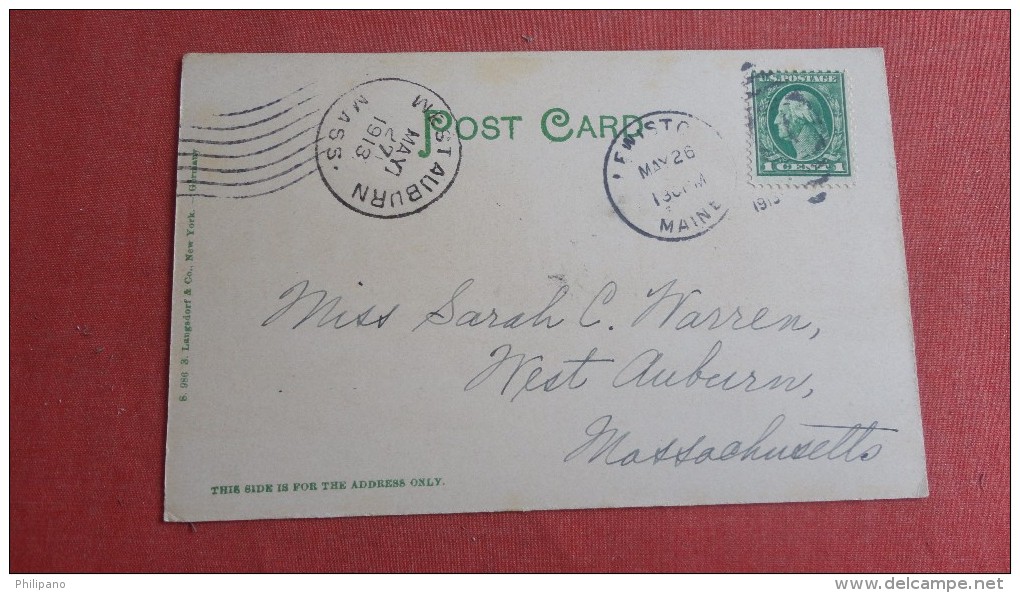 POST CARD
WEST AUBURN
MAY
27
1913
MASS.
MAY 26
MAINE
1913
U.S. POSTAGE
1 CENT 1
Miss Sarah C. Warren,
West Auburn,
Massachusetts
THIS SIDE IS FOR THE ADDRESS ONLY.
S. 986 S. Langsdorf & Co., New York. - Germany
Philipano
www.delcampe.net